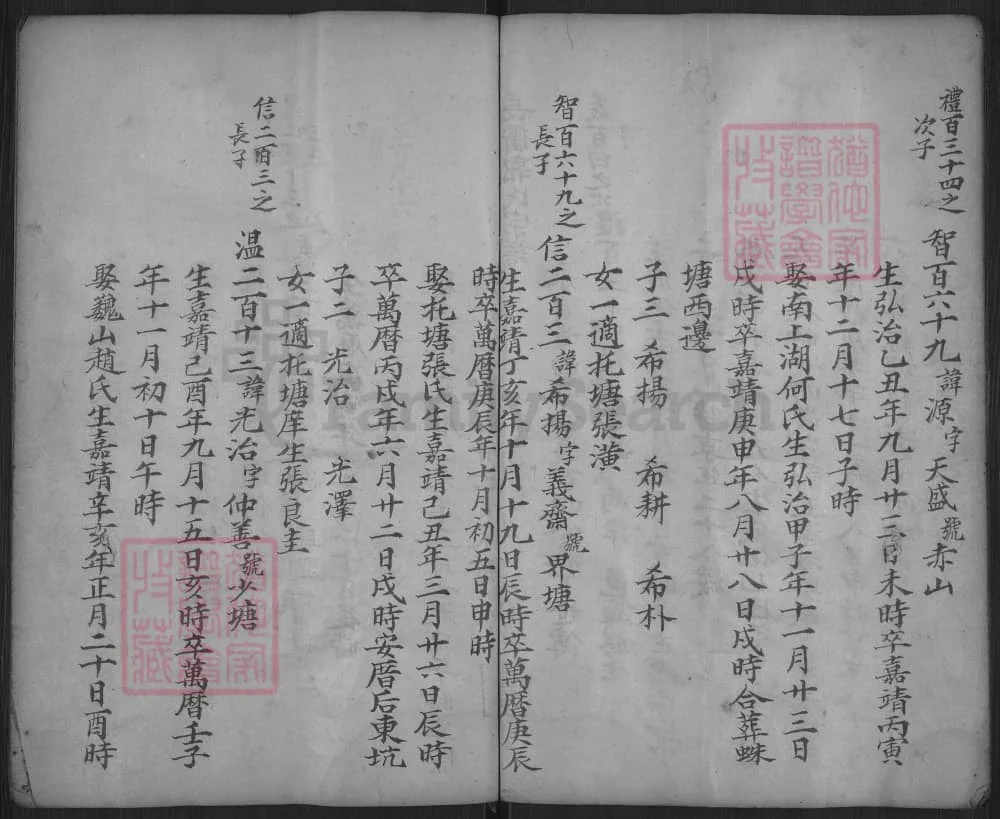 禮百三十四之
次子
智百六十九諱源字天盛號赤山
生弘治乙丑年九月廿二日未時卒嘉靖丙寅
年十二月十七日子時
娶南上湖何氏生弘治甲子年十一月廿三日
戌時卒嘉靖庚申年八月廿八日戌時合葬蛛
塘西邊
子三 希揚 希耕 希朴
女一適托塘張潢
智百六十九之
長子
信二百三諱希揚字義齋號界塘
生嘉靖丁亥年十月十九日辰時卒萬曆庚辰
時卒萬曆庚辰年十月初五日申時
娶托塘張氏生嘉靖己丑年三月廿六日辰時
卒萬曆丙戌年六月廿二日戌時安厝后東坑
子二 光治 光澤
女一適托塘庠生張良圭
信二百三之
長子
温二百十三諱光治字仲善號少塘
生嘉靖己酉年九月十五日亥時卒萬曆壬子
年十一月初十日午時
娶魏山趙氏生嘉靖辛亥年正月二十日酉時
FamilySearch